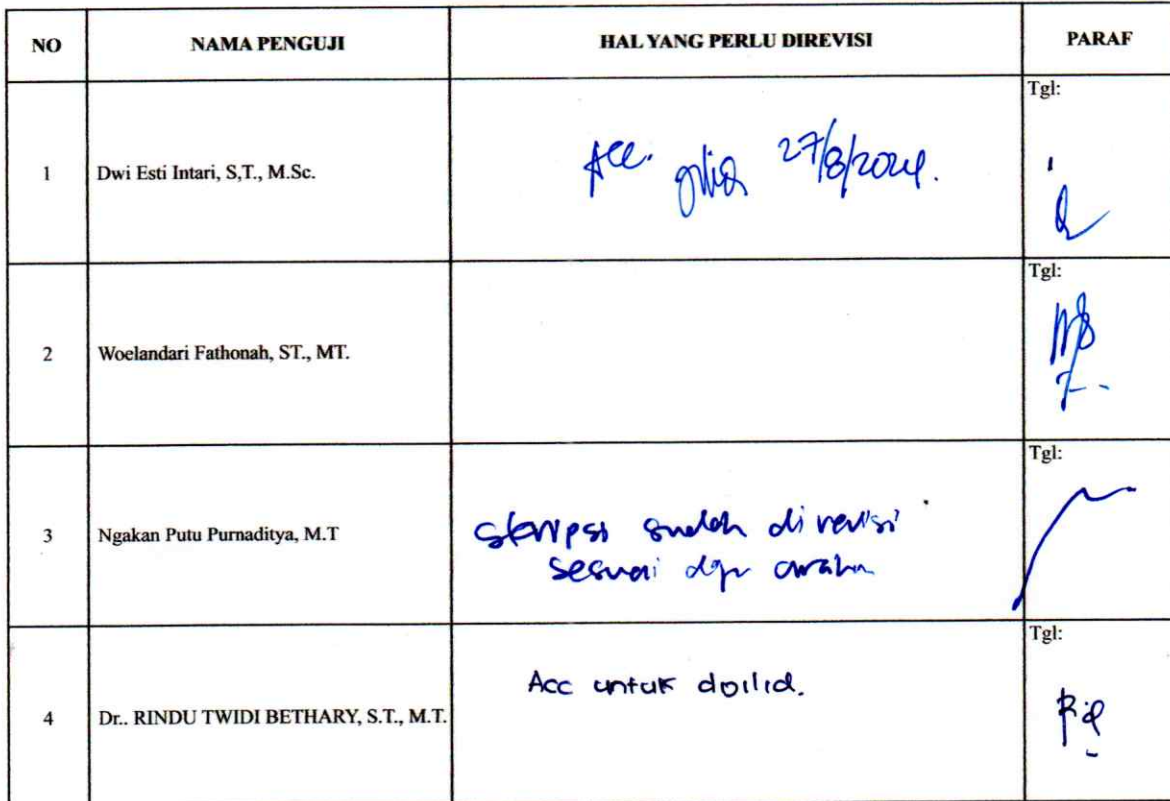 NO NAMA PENGUJI HAL YANG PERLU DIREVISI PARAF
Tgl:
1 Dwi Esti Intari, S,T., M.Sc. Acc. jilid 27/8/2024.
Tgl:
2 Woelandari Fathonah, ST., MT.
Tgl:
3 Ngakan Putu Purnaditya, M.T skripsi sudah di revisi
sesuai dgn arahan
Tgl:
Acc untuk dijilid.
4 Dr.. RINDU TWIDI BETHARY, S.T., M.T.